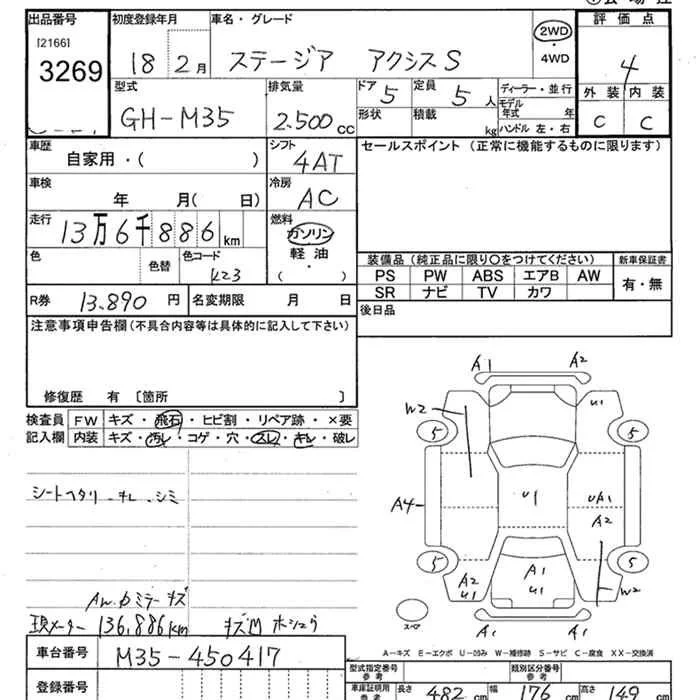 出品番号 初度登録年月 車名・グレード 評価点
[2166]
3269
18 2月 ステージア アクシスS 2WD ・ 4WD 4
外装 内装
C C
型式 排気量 ドア 定員 ディーラー・並行
GH-M35 2.500cc 5 5人 モデル年式 年
形状 積載 kg ハンドル 左・右
車歴 シフト セールスポイント (正常に機能するものに限ります)
自家用・( ) 4AT
車検 冷房
年 月( 日) AC
走行 燃料
13万6千886km ガソリン
軽油
・( )
色 色替 色コード
K23
装備品 (純正品に限り○をつけてください) 新車保証書
PS PW ABS エアB AW 有・無
SR ナビ TV カワ
R券 13.890円 名変期限 月 日 後日品
注意事項申告欄 (不具合内容等は具体的に記入して下さい)
修復歴 有 [箇所 ]
検査員 FW キズ・飛石・ヒビ割・リペア跡・×要
記入欄 内装 キズ・汚レ・コゲ・穴・スレ・キレ・破レ
シートヘタリ・キレ・シミ
AW.カミラーキズ
現メーター 136,886km キズ凹 ホシュウ
A1 A2
W2 U1
5 5
A4 U1 UA1
A2
5 5
A2 A1 W2
U1 U1
スペア
A1 A1
A-キズ E-エクボ U-凹み W-補修跡 S-サビ C-腐食 XX-交換済
車台番号 M35-450417
登録番号
型式指定番号 参考 類別区分番号 参考
車庫証明用 参考 長さ 482cm 幅 176cm 高さ 149cm